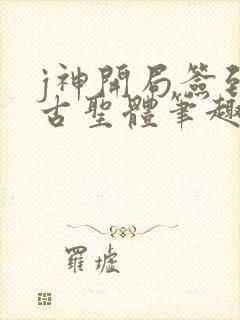 j神開局簽
古聖體筆趣
羅墟